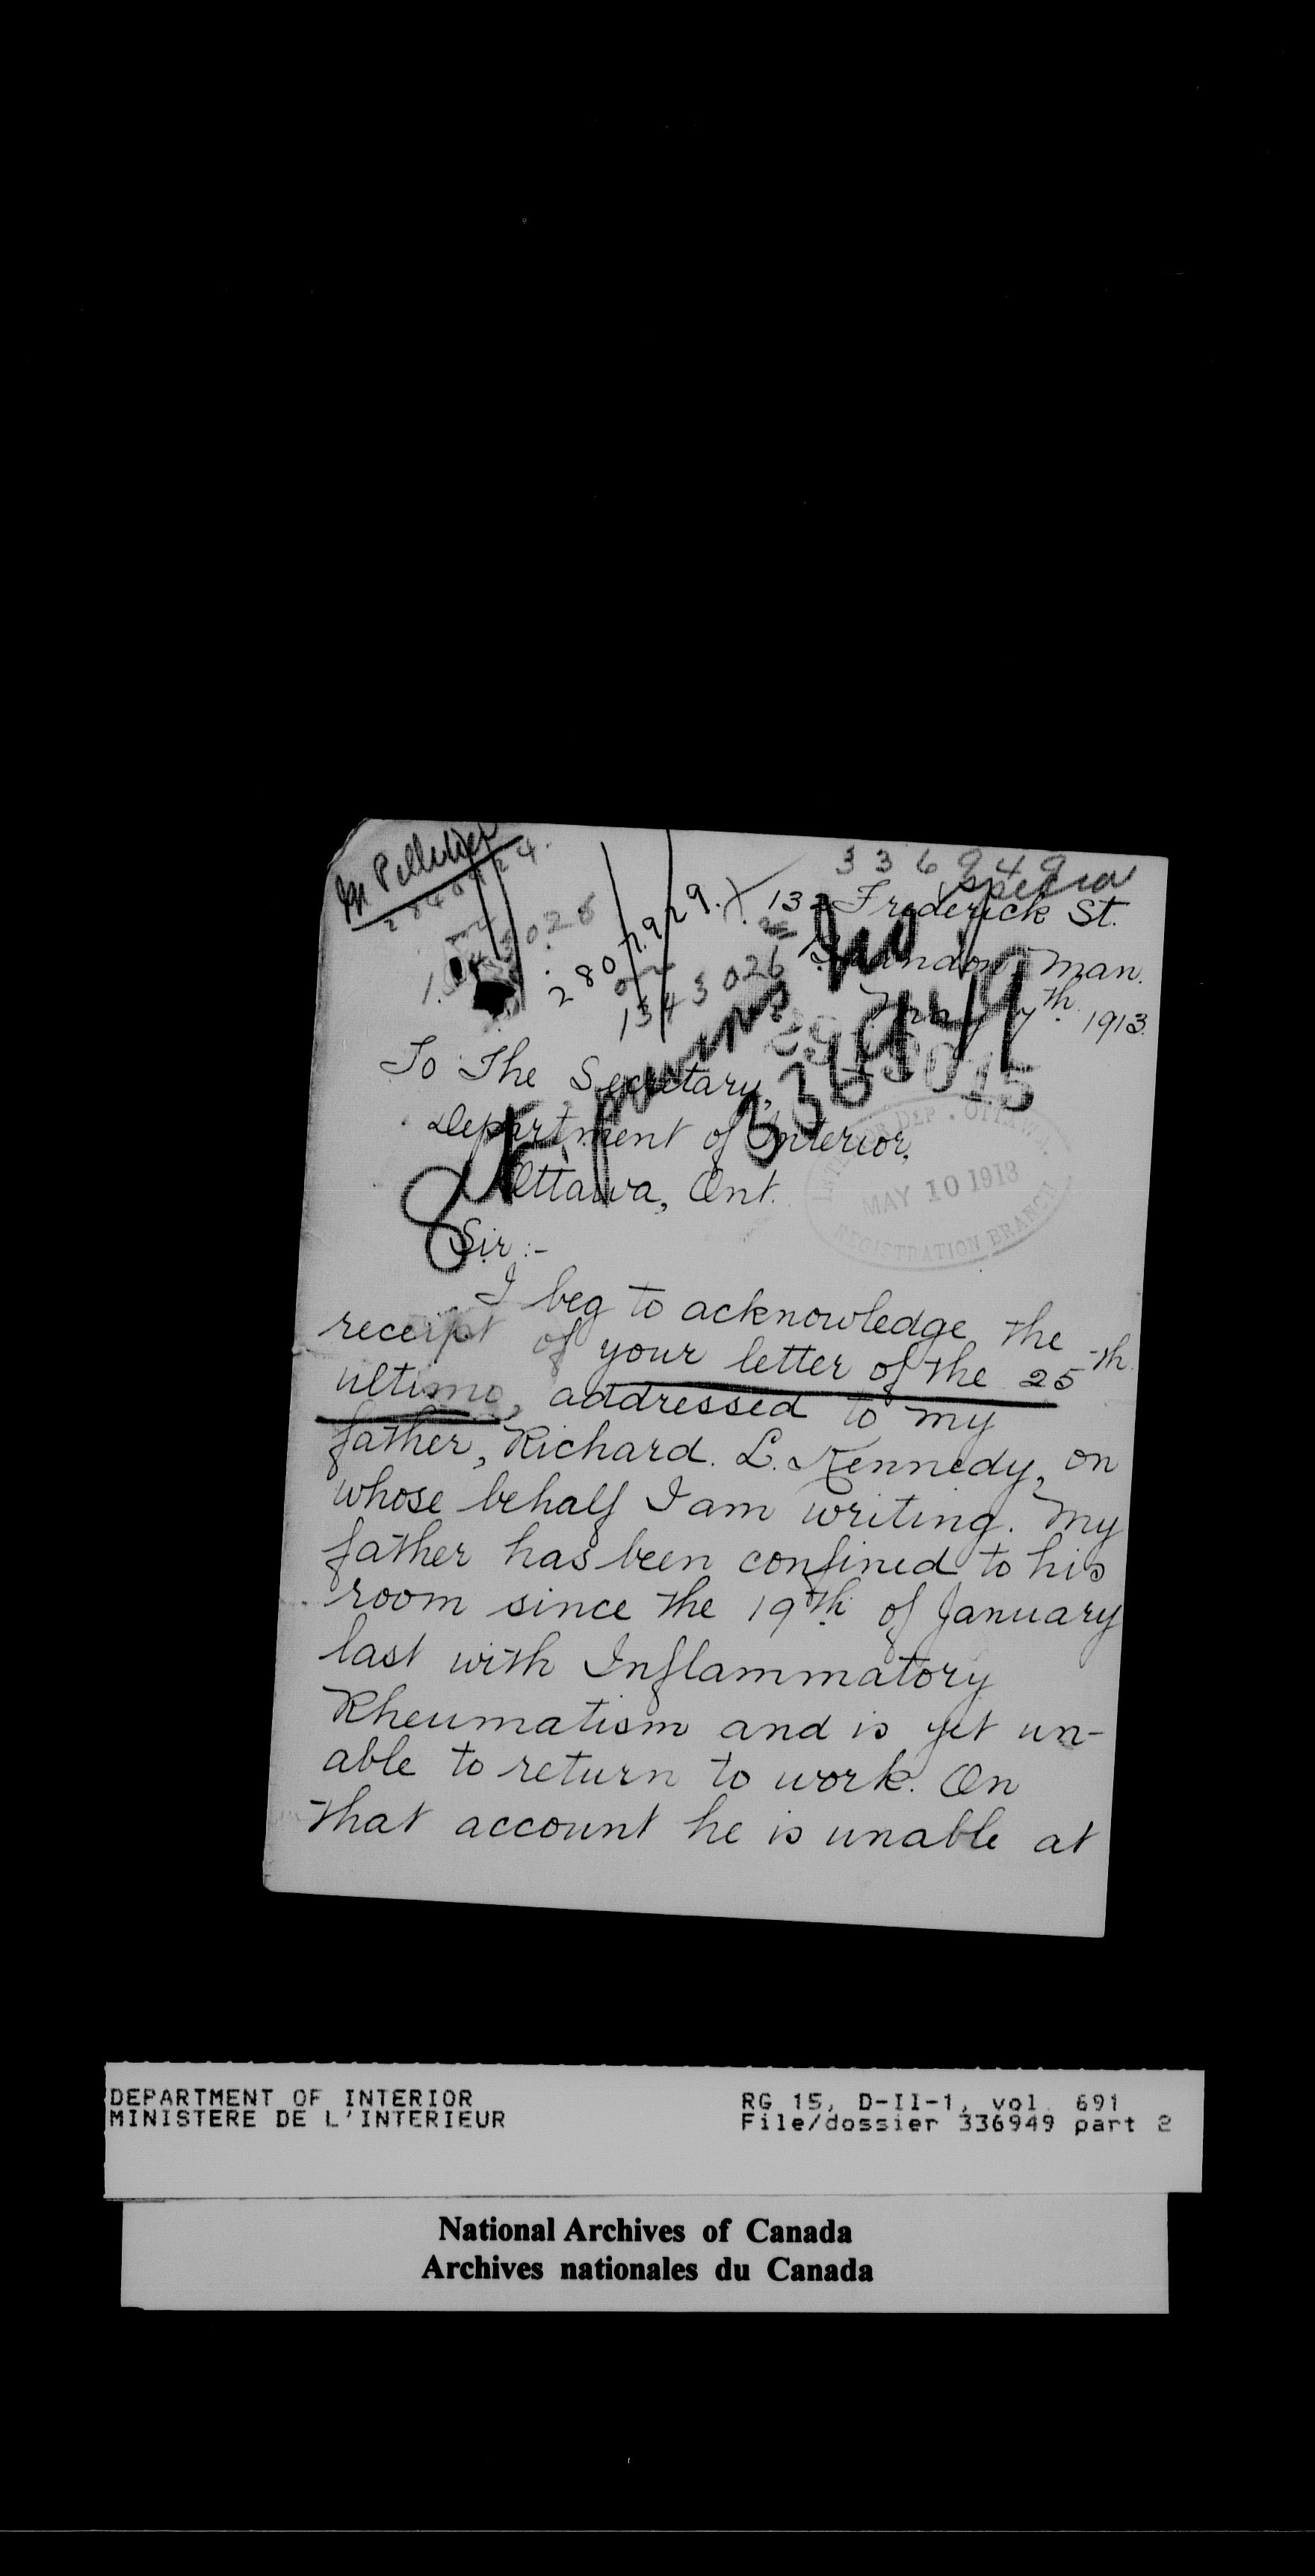 Mr Pelletier
336949
Special
2807929.
1343026
Frederick St.
Brandon, Man.
May 7th 1913.
336949
To The Secretary,
Department of Interior,
Ottawa, Ont.
INTERIOR DEP. OTTAWA.
MAY 10 1913
REGISTRATION BRANCH
Sir:-
I beg to acknowledge the
receipt of your letter of the 25th
ultimo, addressed to my
father, Richard. L. Kennedy, on
whose behalf I am writing. My
father has been confined to his
room since the 19th of January
last with Inflammatory
Rheumatism and is yet un-
able to return to work. On
that account he is unable at
DEPARTMENT OF INTERIOR
MINISTERE DE L'INTERIEUR
RG 15, D-II-1, vol. 691
File/dossier 336949 part 2
National Archives of Canada
Archives nationales du Canada